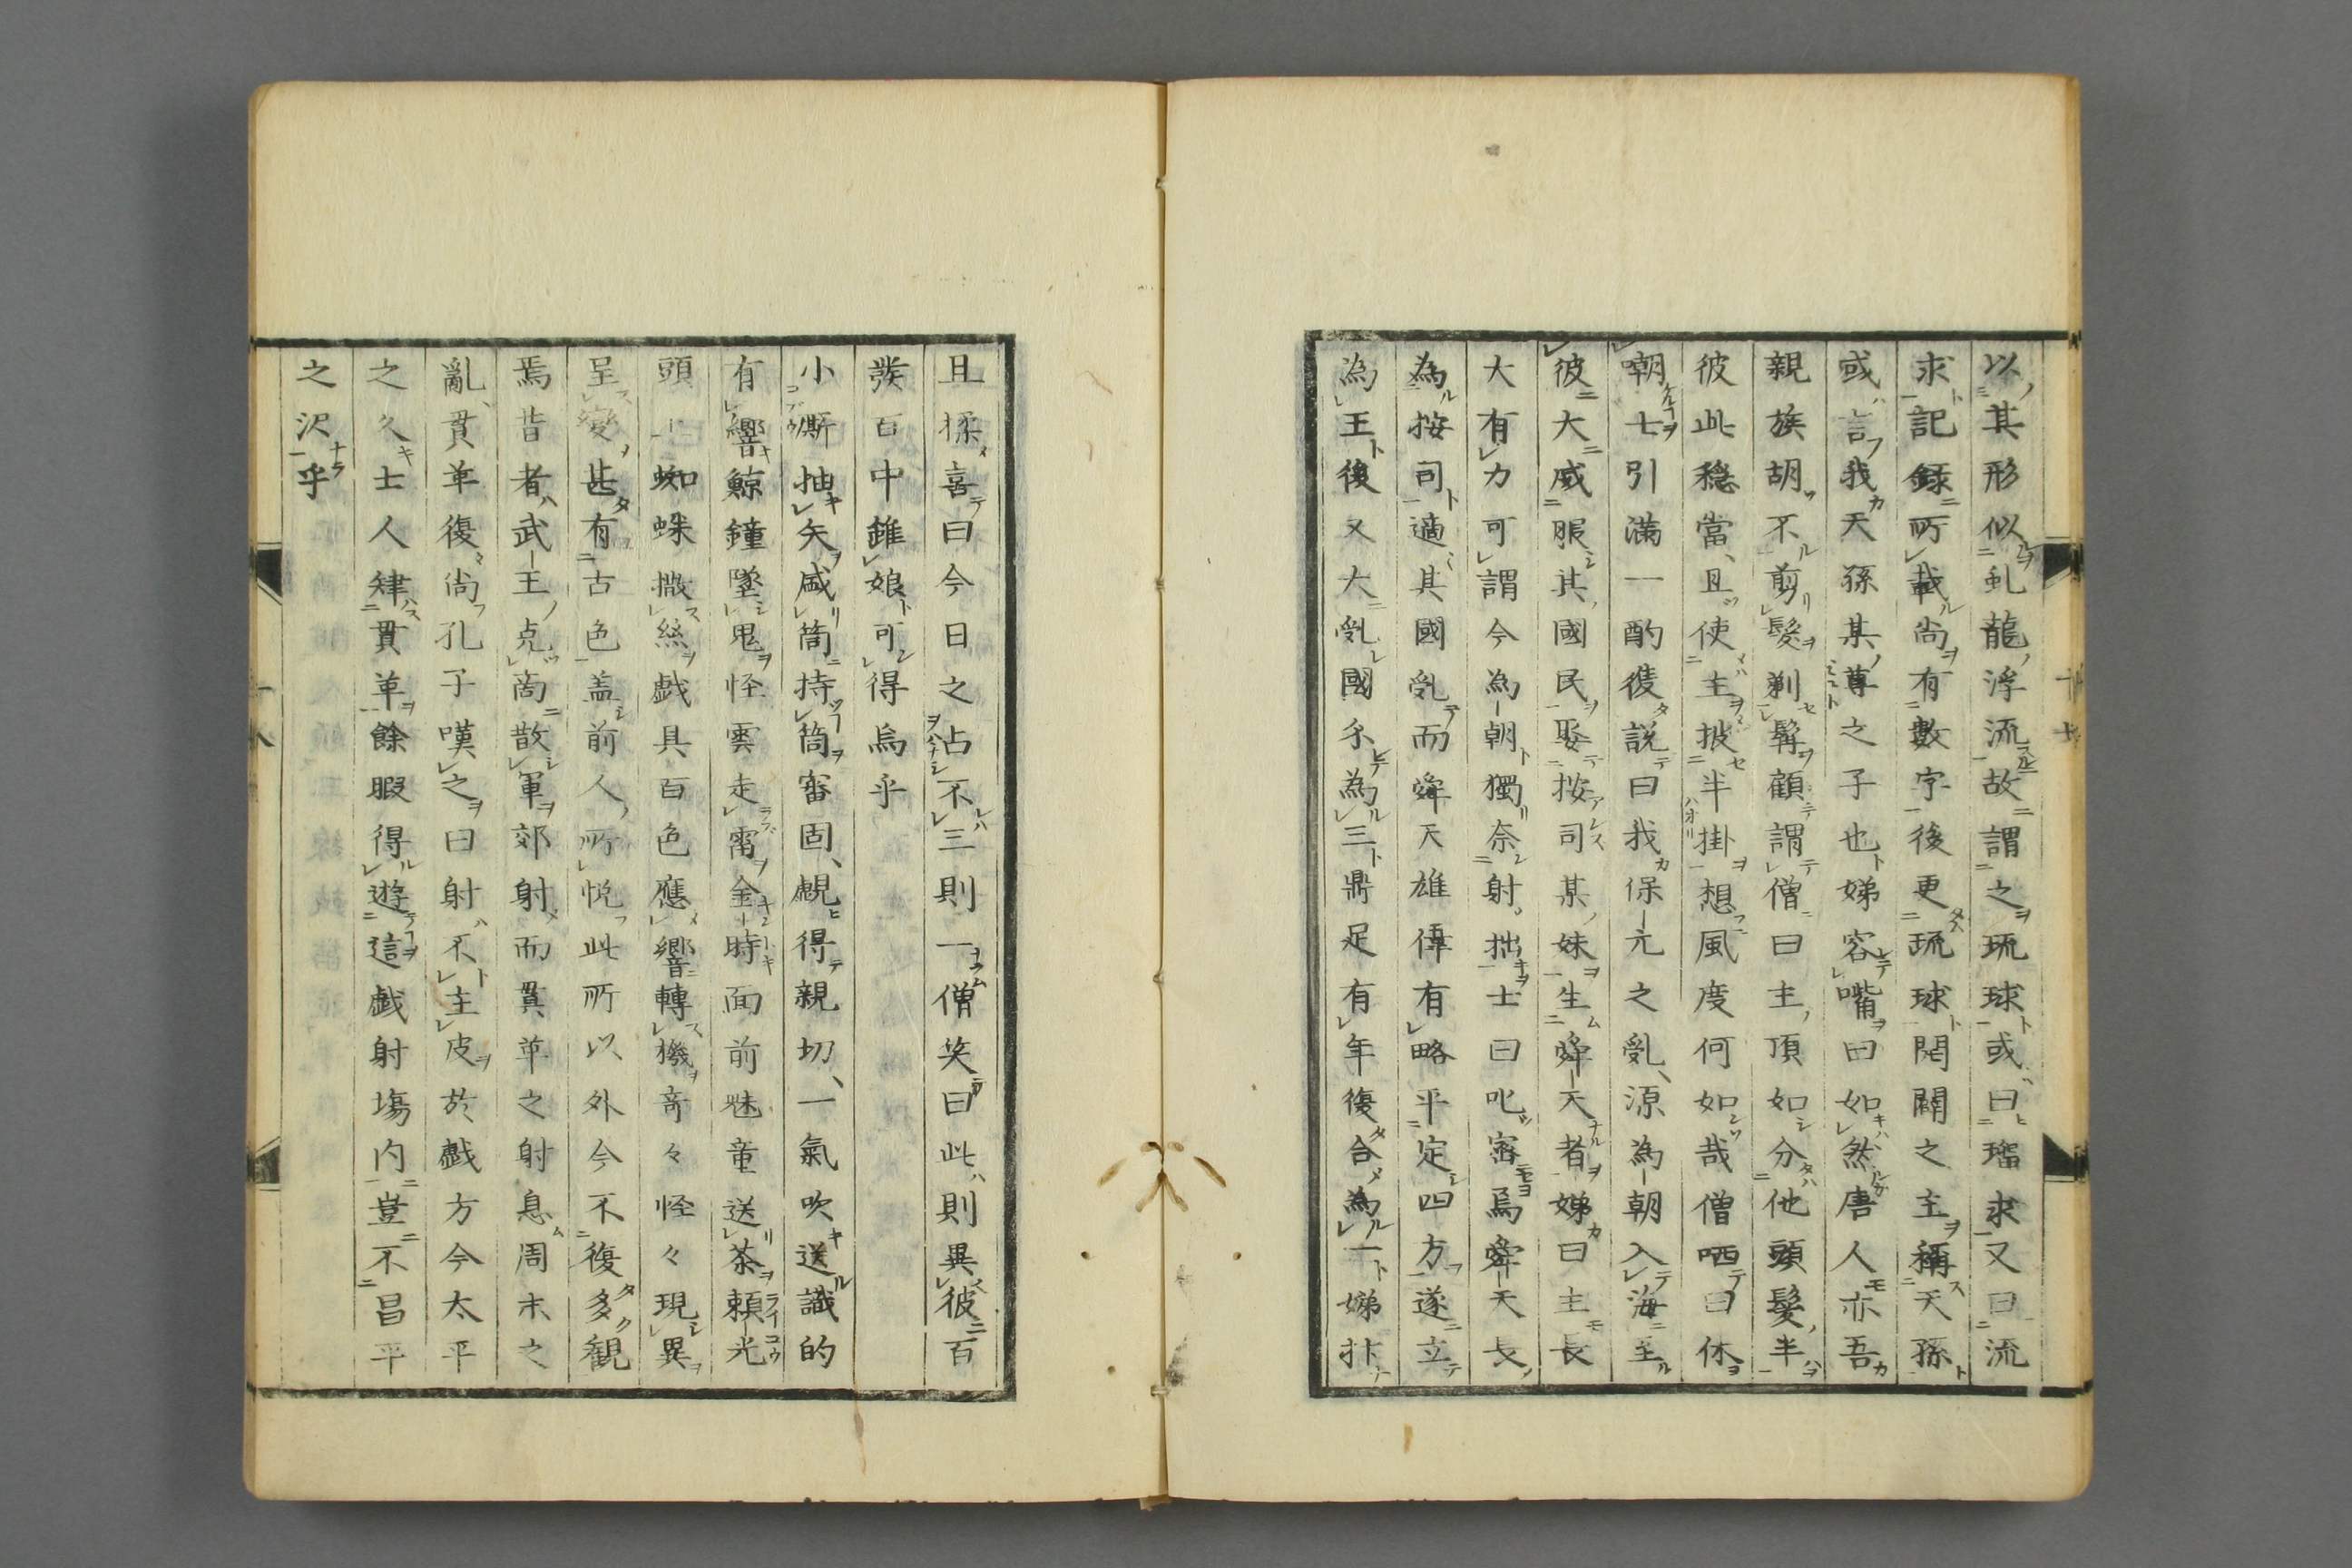 以其形似虬龍浮流故謂之琉球或曰瑠求又曰流
求記録所載尚有數字後更琉球開闢之主稱天孫
或言我天孫某尊之子也娣容嘴曰如然唐人亦吾
親族胡不剪髮剃髯顧謂僧曰主頂如分他頭髮半
彼此穏當、且使主披半掛想風度何如哉僧哂曰休
嘲士引満一酌後説曰我保元之乱、源為朝入海至
彼大威服其國民娶按司某妹生舜天者娣曰主長
大有力可謂今為朝獨奈射拙士曰叱審焉舜天長
為按司適其國乱而舜天雄偉有略平定四方遂立
為王後又大乱國分為三鼎足有年復合為一娣抃
且揉喜曰今日之占不三則一僧笑曰此則異彼百
發百中雖娘可得焉乎
小廝抽矢盛筒持筒審固、覷得親切、一氣吹送識的
有響鯨鐘墜鬼怪雲走霤金時面前魅童送茶頼光
頭上蜘蛛撒絲戯具百色應響轉機奇々怪々現異
呈變甚有古色盖前人所悦此所以外今不復多観
焉昔者武王克商散軍郊射而貫革之射息周末之
亂貫革復尚孔子嘆之曰射不主皮於戯方今太平
之久士人肄貫革餘暇得遊這戯射場内豈不昌平
之沢乎